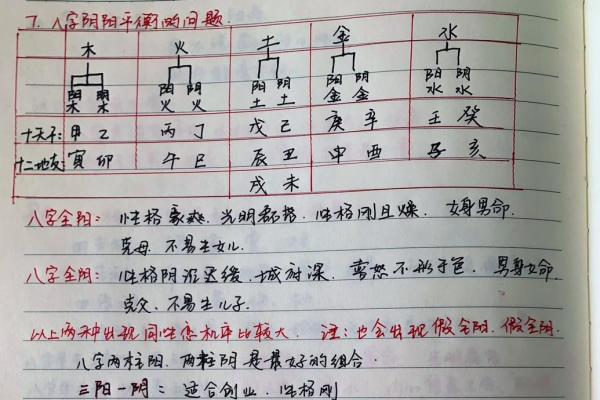 7. 八字阴阳平衡的问题.
木 火 土 金 水
阳木 阴木 阳火 阴火 阳土 阴土 阳金 阴金 阳水 阴水
十天干: 甲 乙 丙 丁 戊 己 庚 辛 壬 癸
十二地支: 寅 卯 午 巳 辰 丑 申 酉 子 亥
戌 未
八字全阳: 性格豪爽. 光明磊落. 性格刚且燥. 女身男命.
克母. 不易生女儿.
八字全阴: 性格阴沉迟缓, 城府深. 喜怒不形于色. 男身女命.
克父. 不易生儿子.
以上两种出现同性恋机率比较大. 注: 也会出现假全阳. 假全阴.
八字两柱阳. 两柱阴是最好的组合.
三阳一阴: 适合创业. 性格刚